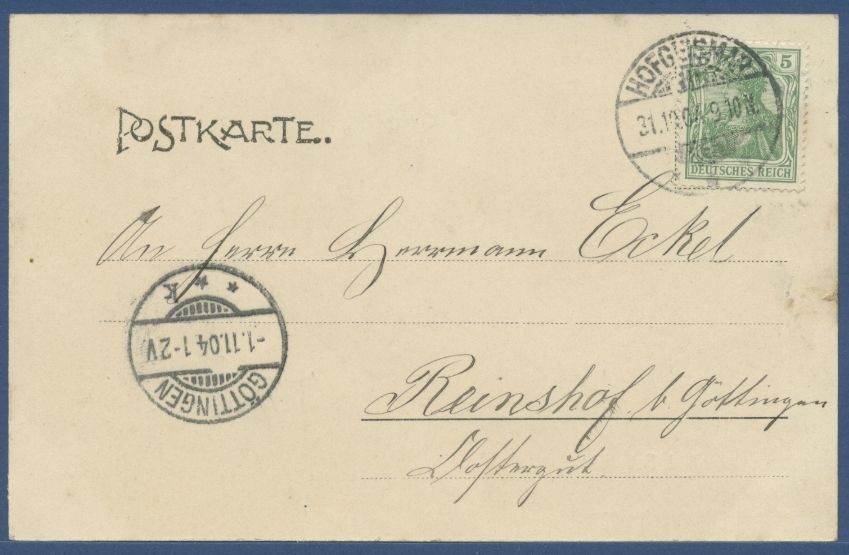 POSTKARTE..
HOFGEISMAR
31.10.04 9-10 N.
5
DEUTSCHES REICH
An Herrn Herrmann Eckel
GÖTTINGEN
-1.11.04.1-2V.
* * *
k
Reinshof b. Göttingen
Klostergut.